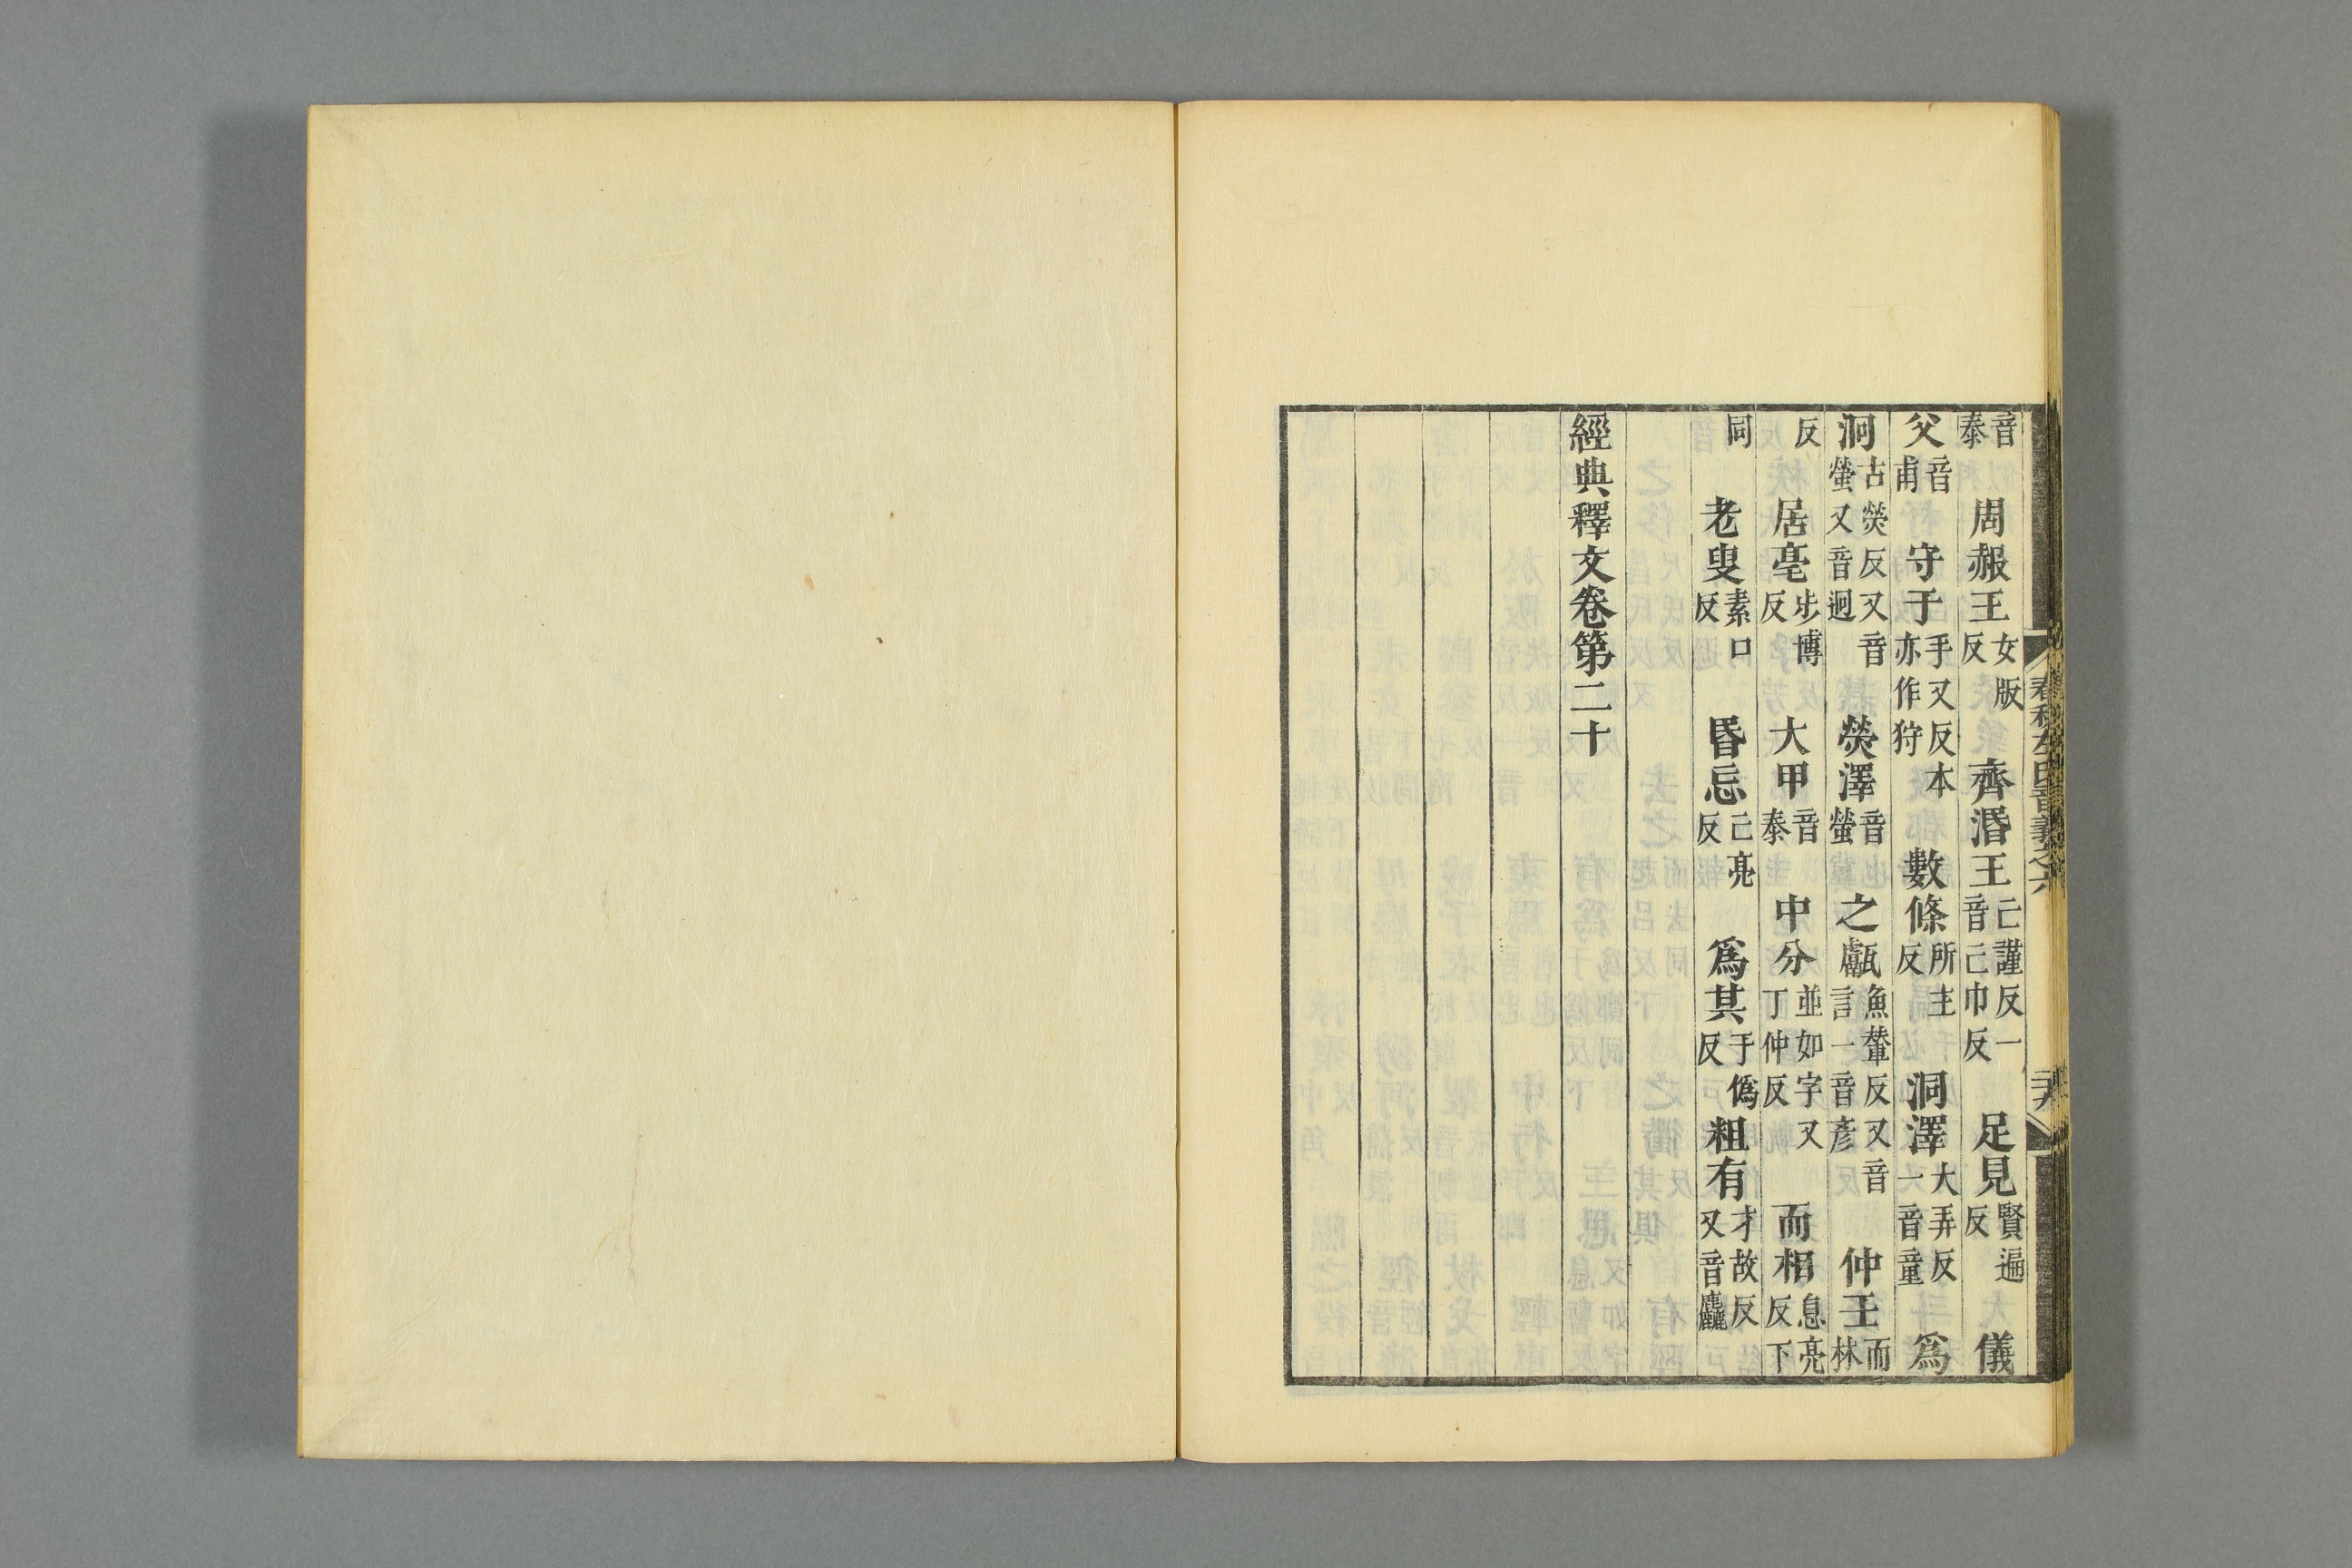 春秋左氏音義之六
音泰 周赧王女版反 齊湣王亡謹反一音亡巾反 足見賢遍反 儀
父音甫 守于手又反本亦作狩 數條所主反 洞澤大弄反一音童 爲
泂古熒反又音螢又音迥 熒澤音螢 之甗魚輦反又音言一音彥 仲壬而林
反 居亳步博反 大甲音泰 中分並如字又丁仲反 而相息亮反下
同 老叟素口反 昬忘亡亮反 爲其于僞反 粗有才故反又音麤
經典釋文卷第二十